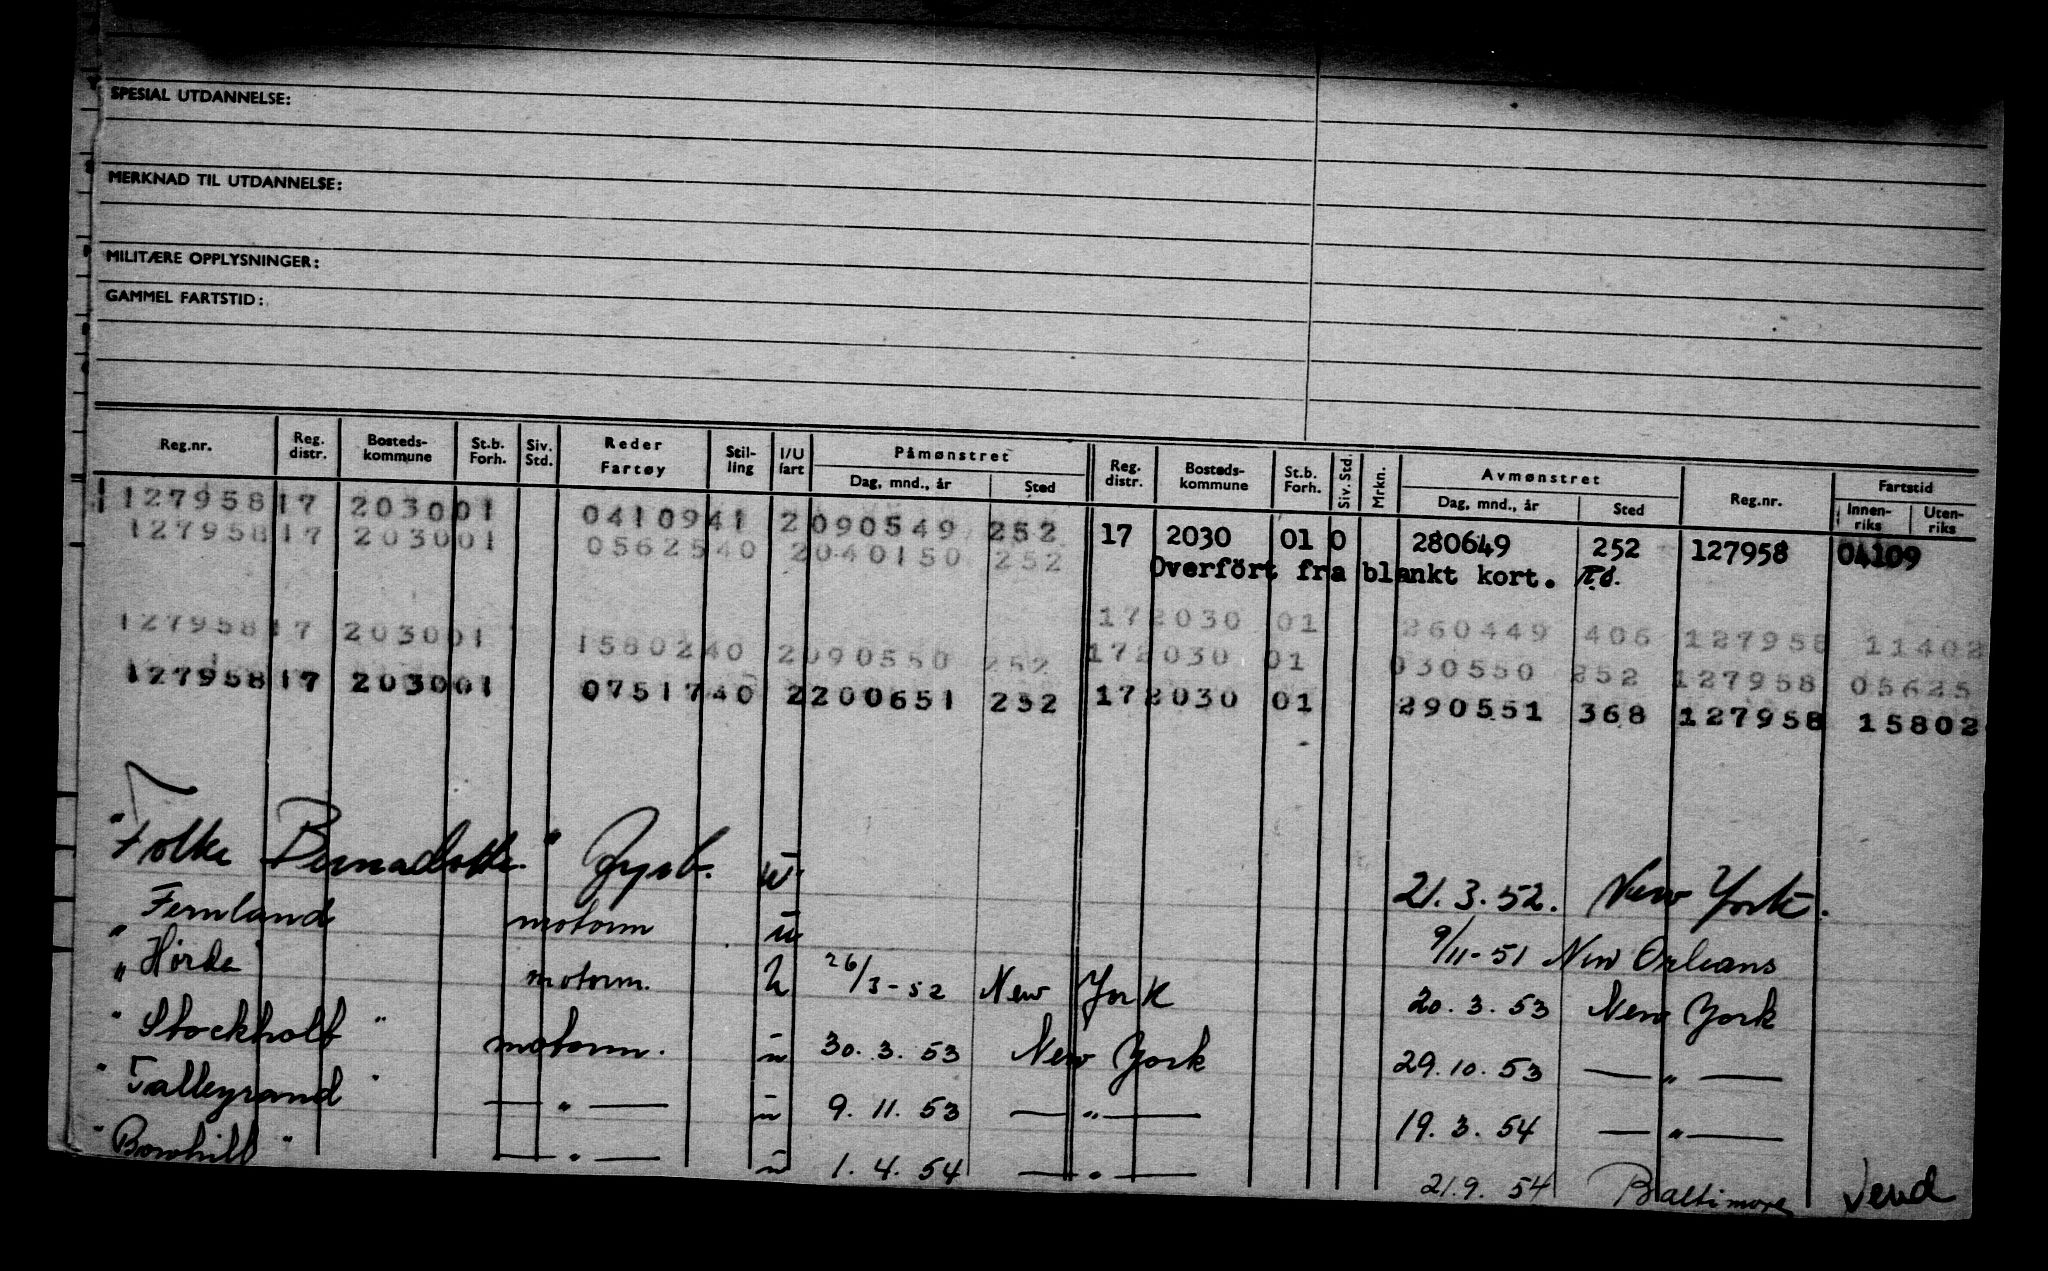 SPESIAL UTDANNELSE:
MERKNAD TIL UTDANNELSE:
MILITÆRE OPPLYSNINGER:
GAMMEL FARTSTID:
Reg.nr. Reg. distr. Bosteds-kommune St.b. Forh. Siv. Std. Reder Fartøy Stil-ling I/U fart Påmønstret Dag, mnd., år Sted Reg. distr. Bosteds-kommune St.b. Forh. Siv. Std. Mrkn. Avmønstret Dag, mnd., år Sted Reg.nr. Fartstid Innen-riks Uten-riks
127958 17 2030 01 04109 41 2 090549 252 17 2030 01 0 280649 252 127958 04109
127958 17 2030 01 05625 40 2 040150 252 Overfört fra blankt kort.
172030 01 260449 406 127958 11402
127958 17 2030 01 15802 40 2 090550 252 172030 01 030550 252 127958 05625
127958 17 2030 01 07517 40 2 200651 252 172030 01 290551 368 127958 15802
"Folke Bernadotte" Jgsb. u 21.3.52. New York.
" Fernland motorm u 9/11-51 New Orleans
" Hörda motorm. u 26/3-52 New York 20.3.53 New York
" Stockholt " motorm. u 30.3.53 New York 29.10.53 — " —
" Talleyrand " — " — u 9.11.53 — " — 19.3.54 — " —
" Bowhill " — " — u 1.4.54 — " — 21.9.54 Baltimore Vend